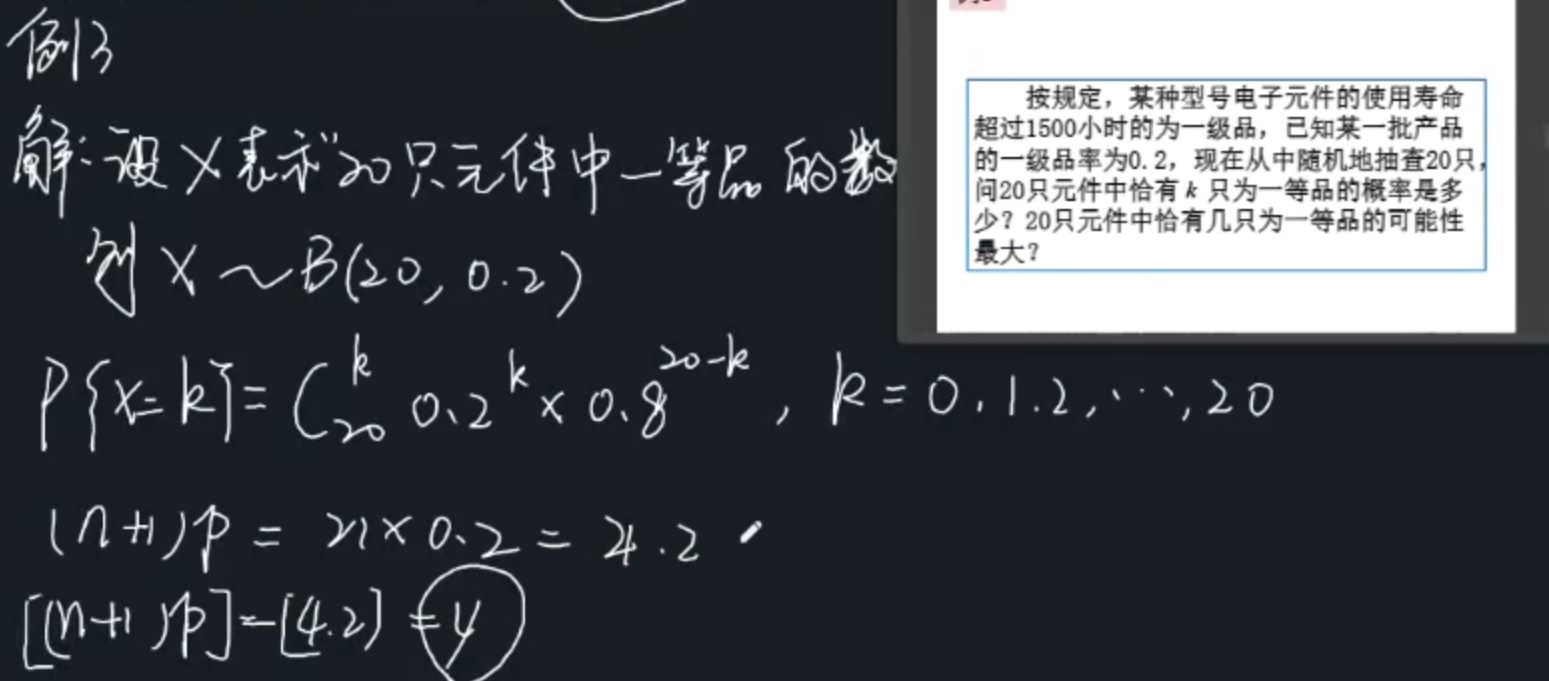 例3
解:设X表示"20只元件中一等品的数
则X～B(20, 0.2)
P{X=k}=C₂₀ᵏ 0.2ᵏ×0.8²⁰⁻ᵏ, k=0.1.2,…,20
(n+1)p = 21×0.2 = 4.2
[(n+1)p]=[4.2]=4
按规定，某种型号电子元件的使用寿命
超过1500小时的为一级品，已知某一批产品
的一级品率为0.2，现在从中随机地抽查20只，
问20只元件中恰有 k 只为一等品的概率是多
少？20只元件中恰有几只为一等品的可能性
最大？